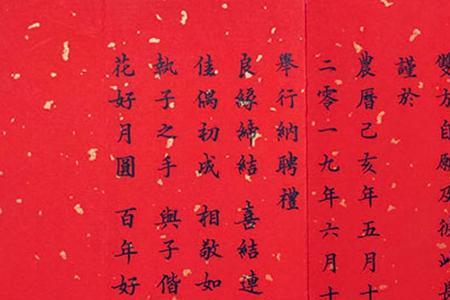 雙方自願及彼此長
謹於
農曆己亥年五月十
二零一九年六月十
舉行納聘禮
良緣締結 喜結連
佳偶初成 相敬如
執子之手 與子偕
花好月圓 百年好